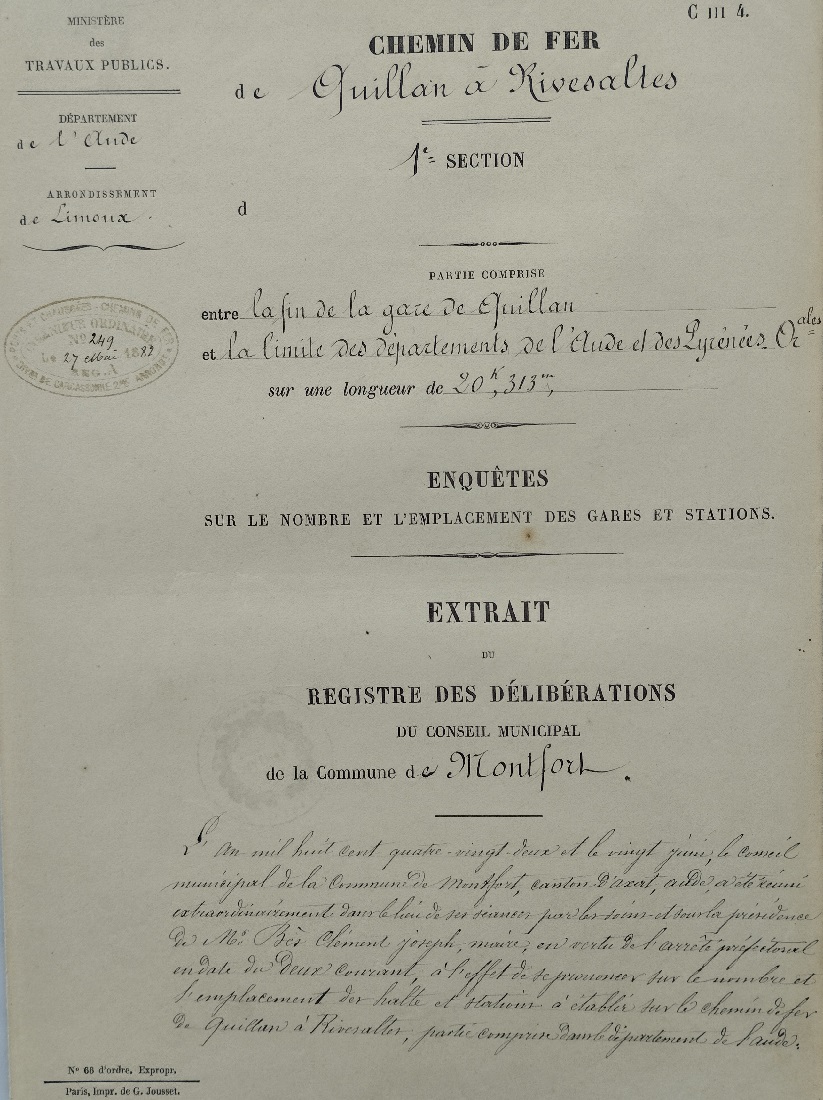 C III 4.
MINISTÈRE
des
TRAVAUX PUBLICS.
DÉPARTEMENT
de l'Aude
ARRONDISSEMENT
de Limoux.
CHEMIN DE FER
de Quillan à Rivesaltes
1e SECTION
d
PARTIE COMPRISE
entre la fin de la gare de Quillan
et la limite des départements de l'Aude et des Pyrénées Orales
sur une longueur de 20k,313m,
PONTS ET CHAUSSÉES - CHEMINS DE FER
INGÉNIEUR ORDINAIRE
No 249
Le 27 Mai 1883
REG. A
CARCASSONNE
ENQUÊTES
SUR LE NOMBRE ET L'EMPLACEMENT DES GARES ET STATIONS.
EXTRAIT
DU
REGISTRE DES DÉLIBÉRATIONS
DU CONSEIL MUNICIPAL
de la Commune de Montfort.
L'An mil huit cent quatre-vingt-deux et le vingt juin, le conseil
municipal de la Commune de Montfort, canton D'axat, aude, a été réuni
extraordinairement dans le lieu de ses séances par les soins et sous la présidence
de Mr Bès Clément joseph, maire, en vertu de l'arrêté préfectoral
en date du Deux courant, à l'effet de se prononcer sur le nombre et
l'emplacement des halte et station à établir sur le chemin de fer
de Quillan à Rivesaltes, partie comprise dans le département de l'aude.
No 66 d'ordre. Expropr.
Paris, Impr. de G. Jousset.